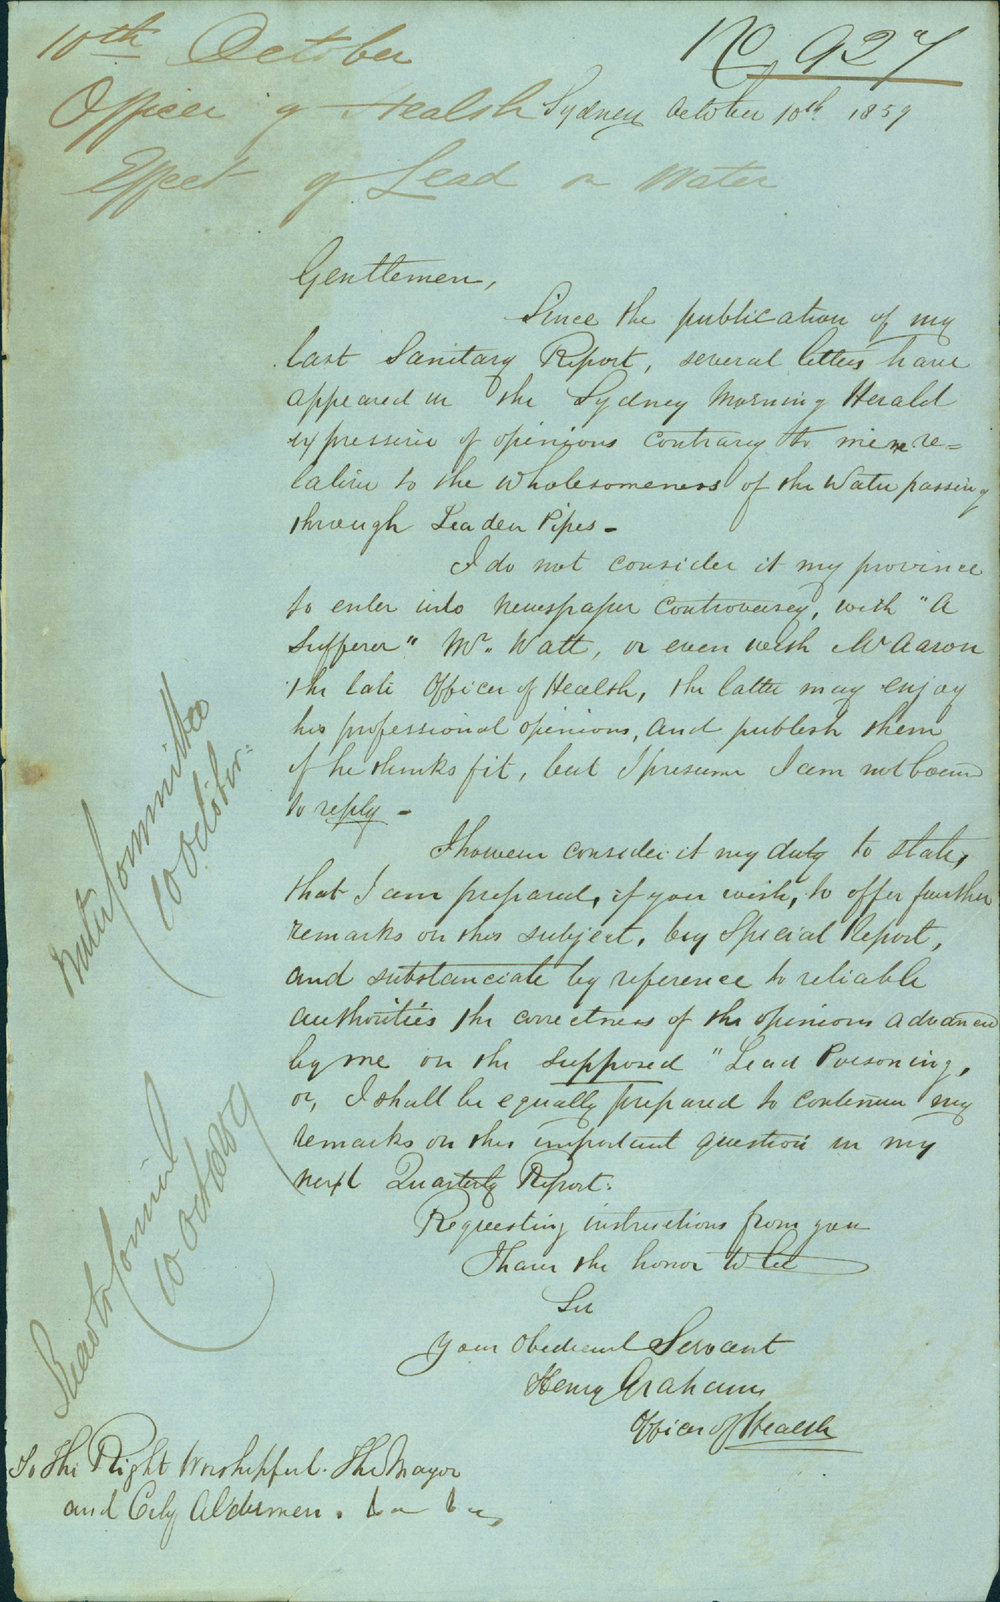 10th October
No 927
Officer of Health
Sydney October 10th 1859
Effect of Lead on Water
Gentlemen,
Since the publication of my
last Sanitary Report, several letters have
appeared in the Sydney Morning Herald
expressive of opinions contrary to mine re=
lative to the wholesomeness of the Water passing
through Leaden Pipes -
I do not consider it my province
to enter into Newspaper Controversy, with "A
Sufferer" Mr. Watt, or even with Mr Aaron
the late Officer of Health, the latter may enjoy
his professional opinions, and publish them
if he thinks fit, but I presume I am not bound
to reply -
I however consider it my duty to state,
that I am prepared, if you wish, to offer further
remarks on this subject, by Special Report,
and substanciate by reference to reliable
authorities the correctness of the opinions advanced
by me on the supposed "Lead Poisoning,
or, I shall be equally prepared to continue my
remarks on this important question in my
next Quarterly Report.
Requesting instructions from you
I have the honor to be
Sir
Your Obedient Servant
Henry Graham
Officer of Health
To The Right Worshipful The Mayor
and City Aldermen.
Water Committee
10 October
Read to Council
10 Oct